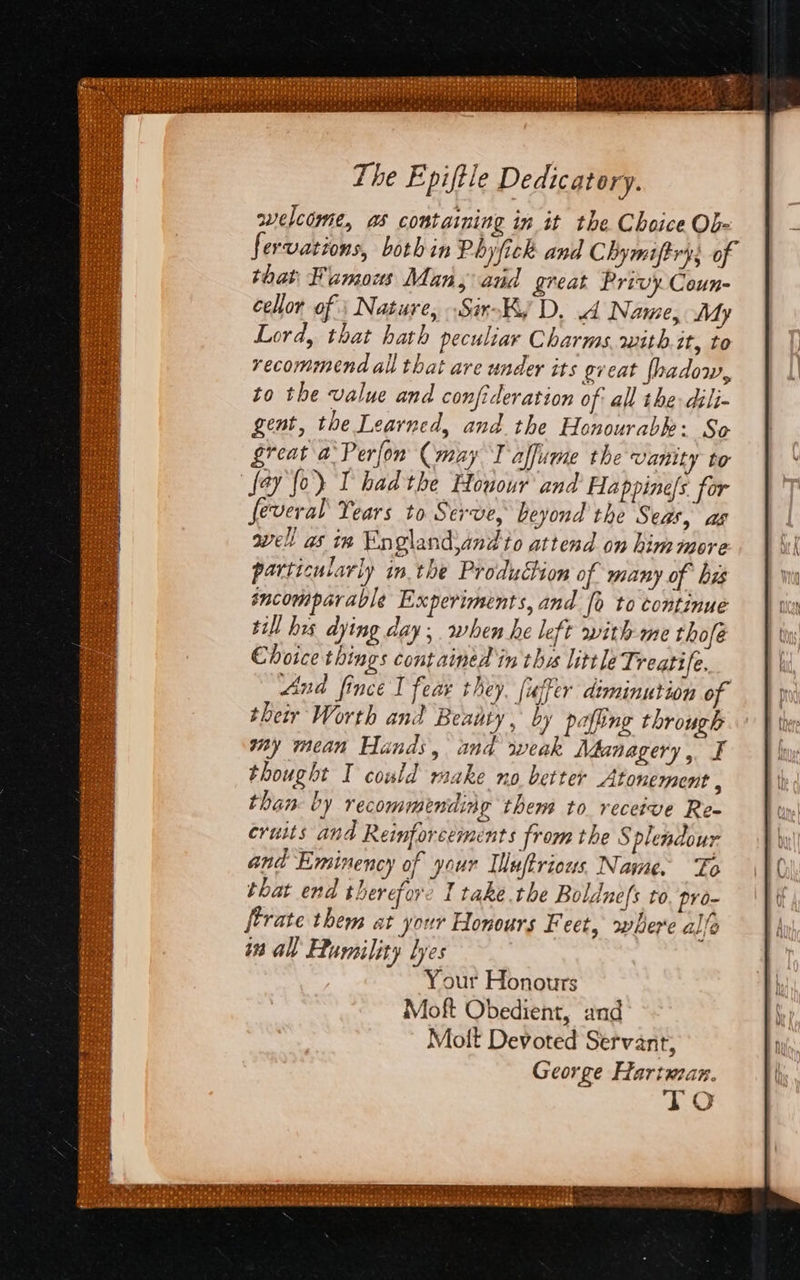 The Epiſtle Dedicatory.
welcome, as containing in it the Choice Ob-
ſervations, both in Phyſick and Chymiſtry; of
that Famous Man, and great Privy Coun-
cellor of Nature, Sir K. D. A Name, My
Lord, that hath peculiar Charms with it, to
recommend all that are under its great ſhadow,
to the value and conſideration of all the dili-
gent, the Learned, and the Honourable: So
great a Perſon (may I aſſume the vanity to
ſay ſo) I had the Honour and Happineſs for
ſeveral Years to Serve, beyond the Seas, as
well as in England, and to attend on him more
particularly in the Production of many of his
incomparable Experiments, and ſo to continue
till his dying day; when he left with me thoſe
Choice things contained in this little Treatiſe.
And ſince I fear they ſuffer diminution of
their Worth and Beauty, by paſſing through
my mean Hands, and weak Managery, I
thought I could make no better Atonement,
than by recommending them to receive Re-
cruits and Reinforcements from the Splendour
and Eminency of your Illuſtrious Name. To
that end therefore I take the Boldneſs to pro-
ſtrate them at your Honours Feet, where alſo
in all Humility lyes
Your Honours
Moſt Obedient, and
Moſt Devoted Servant,
George Hartman.
TO